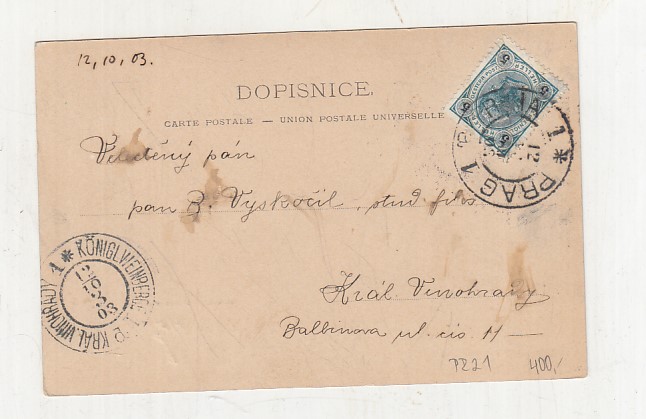 12, 10, 03.
DOPISNICE.
CARTE POSTALE — UNION POSTALE UNIVERSELLE
5 5 5 5
PRAG 1
12
Veleděný pán
pan B. Vyskočil, stud. filos
Král. Vinohrady
Balbinova ul. čís 11 —
1 * KÖNIGL WEINBERGE 1 * KRÁL. VINOHRADY
12
10
3
03
7221 400,-